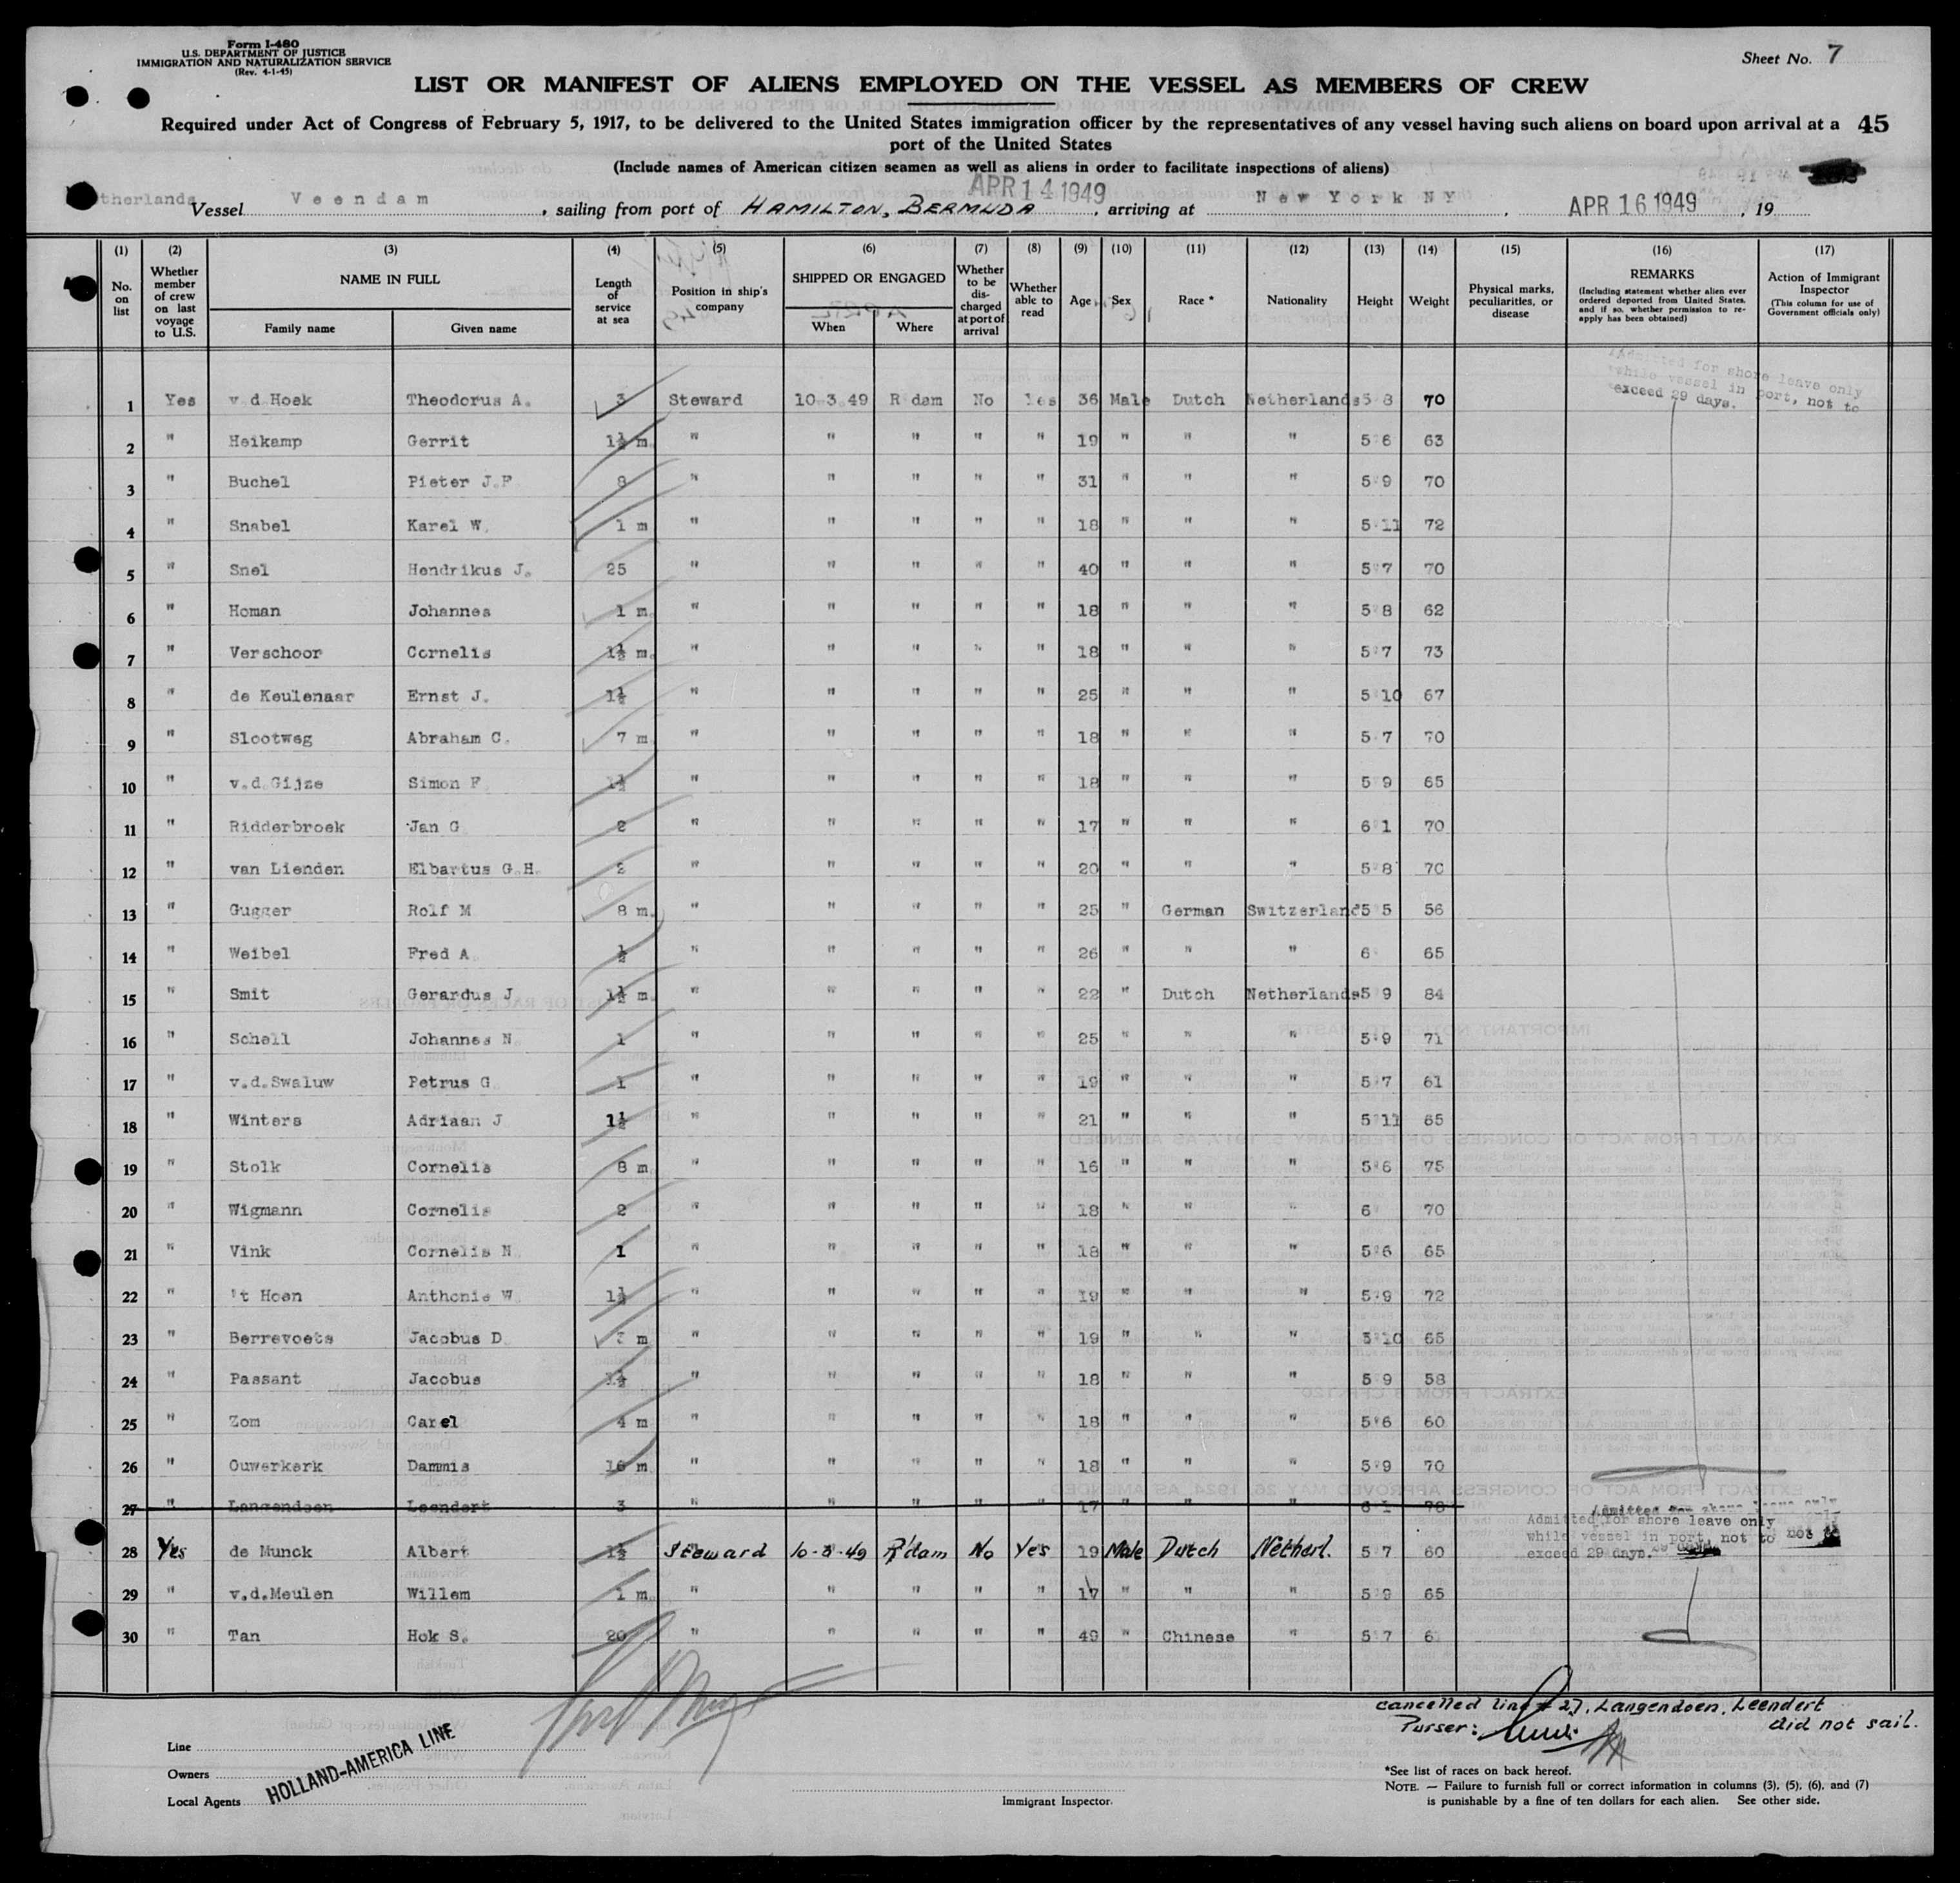 Form I-480
U.S. DEPARTMENT OF JUSTICE
IMMIGRATION AND NATURALIZATION SERVICE
(Rev. 4-1-45)
Sheet No. 7
LIST OR MANIFEST OF ALIENS EMPLOYED ON THE VESSEL AS MEMBERS OF CREW
Required under Act of Congress of February 5, 1917, to be delivered to the United States immigration officer by the representatives of any vessel having such aliens on board upon arrival at a 45
port of the United States
(Include names of American citizen seamen as well as aliens in order to facilitate inspections of aliens)
therlands Vessel Veendam , sailing from port of HAMILTON, BERMUDA APR 14 1949 , arriving at New York NY , APR 16 1949 , 19
(1) (2) (3) (4) (5) (6) (7) (8) (9) (10) (11) (12) (13) (14) (15) (16) (17)
No. on list
Whether member of crew on last voyage to U.S.
NAME IN FULL
Family name Given name
Length of service at sea
Position in ship's company
SHIPPED OR ENGAGED
When Where
Whether to be discharged at port of arrival
Whether able to read
Age Sex Race * Nationality Height Weight
Physical marks, peculiarities, or disease
REMARKS
(Including statement whether alien ever ordered deported from United States, and if so, whether permission to re-apply has been obtained)
Action of Immigrant Inspector
(This column for use of Government officials only)
Admitted for shore leave only
while vessel in port, not to
exceed 29 days.
1 Yes v.d.Hoek Theodorus A. 3 Steward 10-3-49 R'dam No Yes 36 Male Dutch Netherlands 5 8 70
2 " Heikamp Gerrit 1½ m. " " " " " 19 " " " 5 6 63
3 " Buchel Pieter J.F. 8 " " " " " 31 " " " 5 9 70
4 " Snabel Karel W. 1 m " " " " " 18 " " " 5 11 72
5 " Snel Hendrikus J. 25 " " " " " 40 " " " 5 7 70
6 " Homan Johannes 1 m. " " " " " 18 " " " 5 8 62
7 " Verschoor Cornelis 1½ m. " " " " " 18 " " " 5 7 73
8 " de Keulenaar Ernst J. 1½ " " " " " 25 " " " 5 10 67
9 " Slootweg Abraham C. 7 m " " " " " 18 " " " 5 7 70
10 " v.d.Gijze Simon F. 1½ " " " " " 18 " " " 5 9 65
11 " Ridderbroek Jan G 2 " " " " " 17 " " " 6 1 70
12 " van Lienden Elbartus G.H. 2 " " " " " 20 " " " 5 8 70
13 " Gugger Rolf M 8 m. " " " " " 25 " German Switzerland 5 5 56
14 " Weibel Fred A. ½ " " " " " 26 " " " 6 65
15 " Smit Gerardus J 1½ m. " " " " " 22 " Dutch Netherlands 5 9 84
16 " Schell Johannes N. 1 " " " " " 25 " " " 5 9 71
17 " v.d.Swaluw Petrus G 1 " " " " " 19 " " " 5 7 61
18 " Winters Adriaan J 1½ " " " " " 21 " " " 5 11 65
19 " Stolk Cornelis 8 m " " " " " 16 " " " 5 6 75
20 " Wigmann Cornelis 2 " " " " " 18 " " " 6 70
21 " Vink Cornelis N. 1 " " " " " 18 " " " 5 6 65
22 " 't Hoen Anthonie W. 1½ " " " " " 19 " " " 5 9 72
23 " Berrevoets Jacobus D. 7 m " " " " " 19 " " " 5 10 65
24 " Passant Jacobus 1½ " " " " " 18 " " " 5 9 58
25 " Zom Carel 4 m " " " " " 18 " " " 5 6 60
26 " Ouwerkerk Dammis 16 m " " " " " 18 " " " 5 9 70
27 " Langendoen Leendert 3 " " " " " 17 " " " 6 1 70
Admitted for shore leave only
while vessel in port, not to
exceed 29 days.
28 Yes de Munck Albert 1½ Steward 10-3-49 R'dam No Yes 19 Male Dutch Netherl. 5 7 60
29 " v.d.Meulen Willem 1 m. " " " " " 17 " " " 5 9 65
30 " Tan Hok S. 20 " " " " " 49 " Chinese " 5 7
cancelled line # 27, Langendoen, Leendert
did not sail.
Purser:
Line
Owners
Local Agents
HOLLAND-AMERICA LINE
Immigrant Inspector.
*See list of races on back hereof.
NOTE. — Failure to furnish full or correct information in columns (3), (5), (6), and (7)
is punishable by a fine of ten dollars for each alien. See other side.